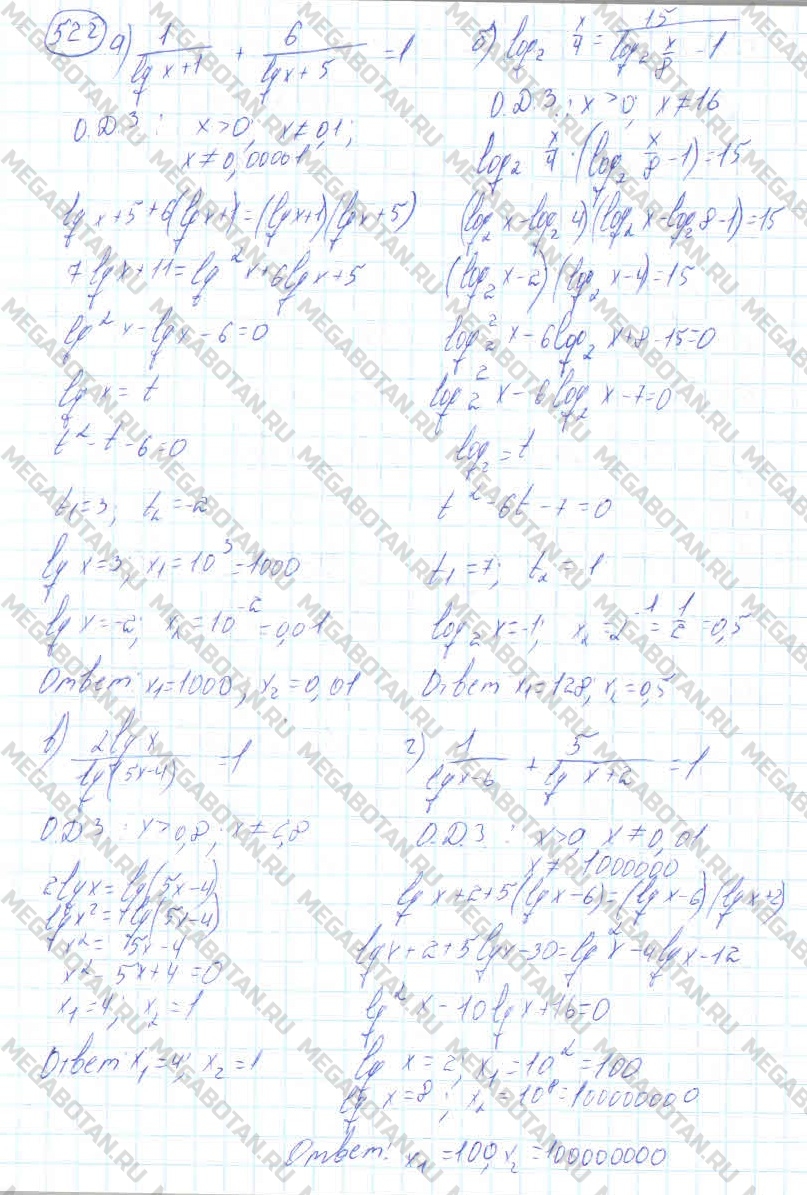 522
а) 1/(lg x+1) + 6/(lg x+5) = 1
О.Д.З: x>0; x≠0,1;
x≠0,00001
lg x+5+6(lg x+1)=(lg x+1)(lg x+5)
7lg x+11=lg²x+6lg x+5
lg²x-lg x-6=0
lg x=t
t²-t-6=0
t₁=3; t₂=-2
lg x=3; x₁=10³=1000
lg x=-2; x₂=10⁻²=0,01
Ответ: x₁=1000, x₂=0,01
б) log₂ x/4 = 15/(log₂ x/8 - 1)
О.Д.З.: x>0; x≠16
log₂ x/4 · (log₂ x/8 - 1)=15
(log₂x-log₂4)(log₂x-log₂8-1)=15
(log₂x-2)(log₂x-4)=15
log₂²x-6log₂x+8-15=0
log₂²x-6log₂x-7=0
log₂=t
t²-6t-7=0
t₁=7; t₂=-1
log₂x=-1; x₂=2⁻¹=1/2=0,5
Ответ: x₁=128; x₂=0,5
в) 2lg x/lg(5x-4) = 1
О.Д.З: x>0,8;
2lg x=lg(5x-4)
lg x²=lg(5x-4)
x²=5x-4
x²-5x+4=0
x₁=4; x₂=1
Ответ: x₁=4; x₂=1
г) 1/(lg x-6) + 5/(lg x+2) = 1
О.Д.З: x>0, x≠0,01
x≠1000000
lg x+2+5(lg x-6)=(lg x-6)(lg x+2)
lg x+2+5lg x-30=lg²x-4lg x-12
lg²x-10lg x+16=0
lg x=2; x₁=10²=100
lg x=8; x₂=10⁸=100000000
Ответ: x₁=100, x₂=100000000
MEGABOTAN.RU